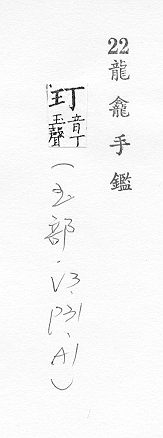 22龍龕手鑑
玎音丁玉聲(玉部、V3、P31、A1)